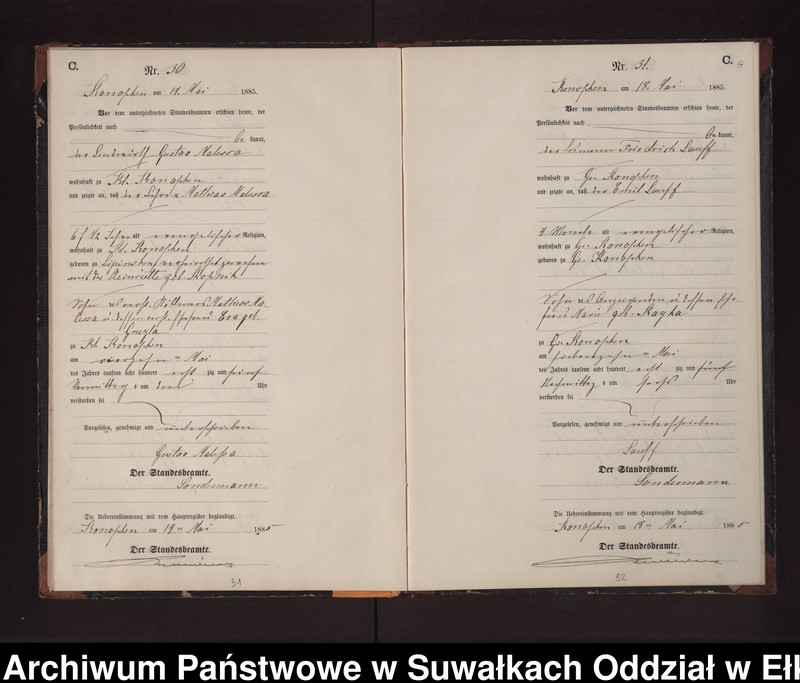 C.
Nr. 30
Konopken am 14. Mai 1885.
Vor dem unterzeichneten Standesbeamten erschien heute, der
Persönlichkeit nach
be kannt,
der Landwirth Gustav Malessa
wohnhaft zu Kl. Konopken
und zeigte an, daß der Mathias Malessa
Jahre alt evangelischer Religion,
wohnhaft zu Kl. Konopken
geboren zu Lipinsken
mit der Henriette geb. Skopnik
Sohn
Eva geb.
zu Kl. Konopken
am vierzehn ten Mai
des Jahres tausend acht hundert acht zig und fünf
Vormittag s um drei Uhr
verstorben sei
Vorgelesen, genehmigt und unterschrieben
Gustav Malessa
Der Standesbeamte.
Sondermann
Die Uebereinstimmung mit dem Hauptregister beglaubigt.
Konopken am 14ten Mai 1885
Der Standesbeamte.
31
C.
Nr. 31.
Konopken am 18. Mai 1885.
Vor dem unterzeichneten Standesbeamten erschien heute, der
Persönlichkeit nach
be kannt,
der Friedrich Lauff
wohnhaft zu Gr. Konopken
und zeigte an, daß der Emil Lauff
9 Monate alt evangelischer Religion,
wohnhaft zu Gr. Konopken
geboren zu Gr. Konopken
Sohn des Anzeigenden u dessen Ehe
frau Marie geb. Kayka
zu Gr. Konopken
am siebenzehn ten Mai
des Jahres tausend acht hundert acht zig und fünf
Nachmittag s um sechs Uhr
verstorben sei
Vorgelesen, genehmigt und unterschrieben
Lauff
Der Standesbeamte.
Sondermann
Die Uebereinstimmung mit dem Hauptregister beglaubigt.
Konopken am 18ten Mai 1885
Der Standesbeamte.
32
Archiwum Państwowe w Suwałkach Oddział w Ełk